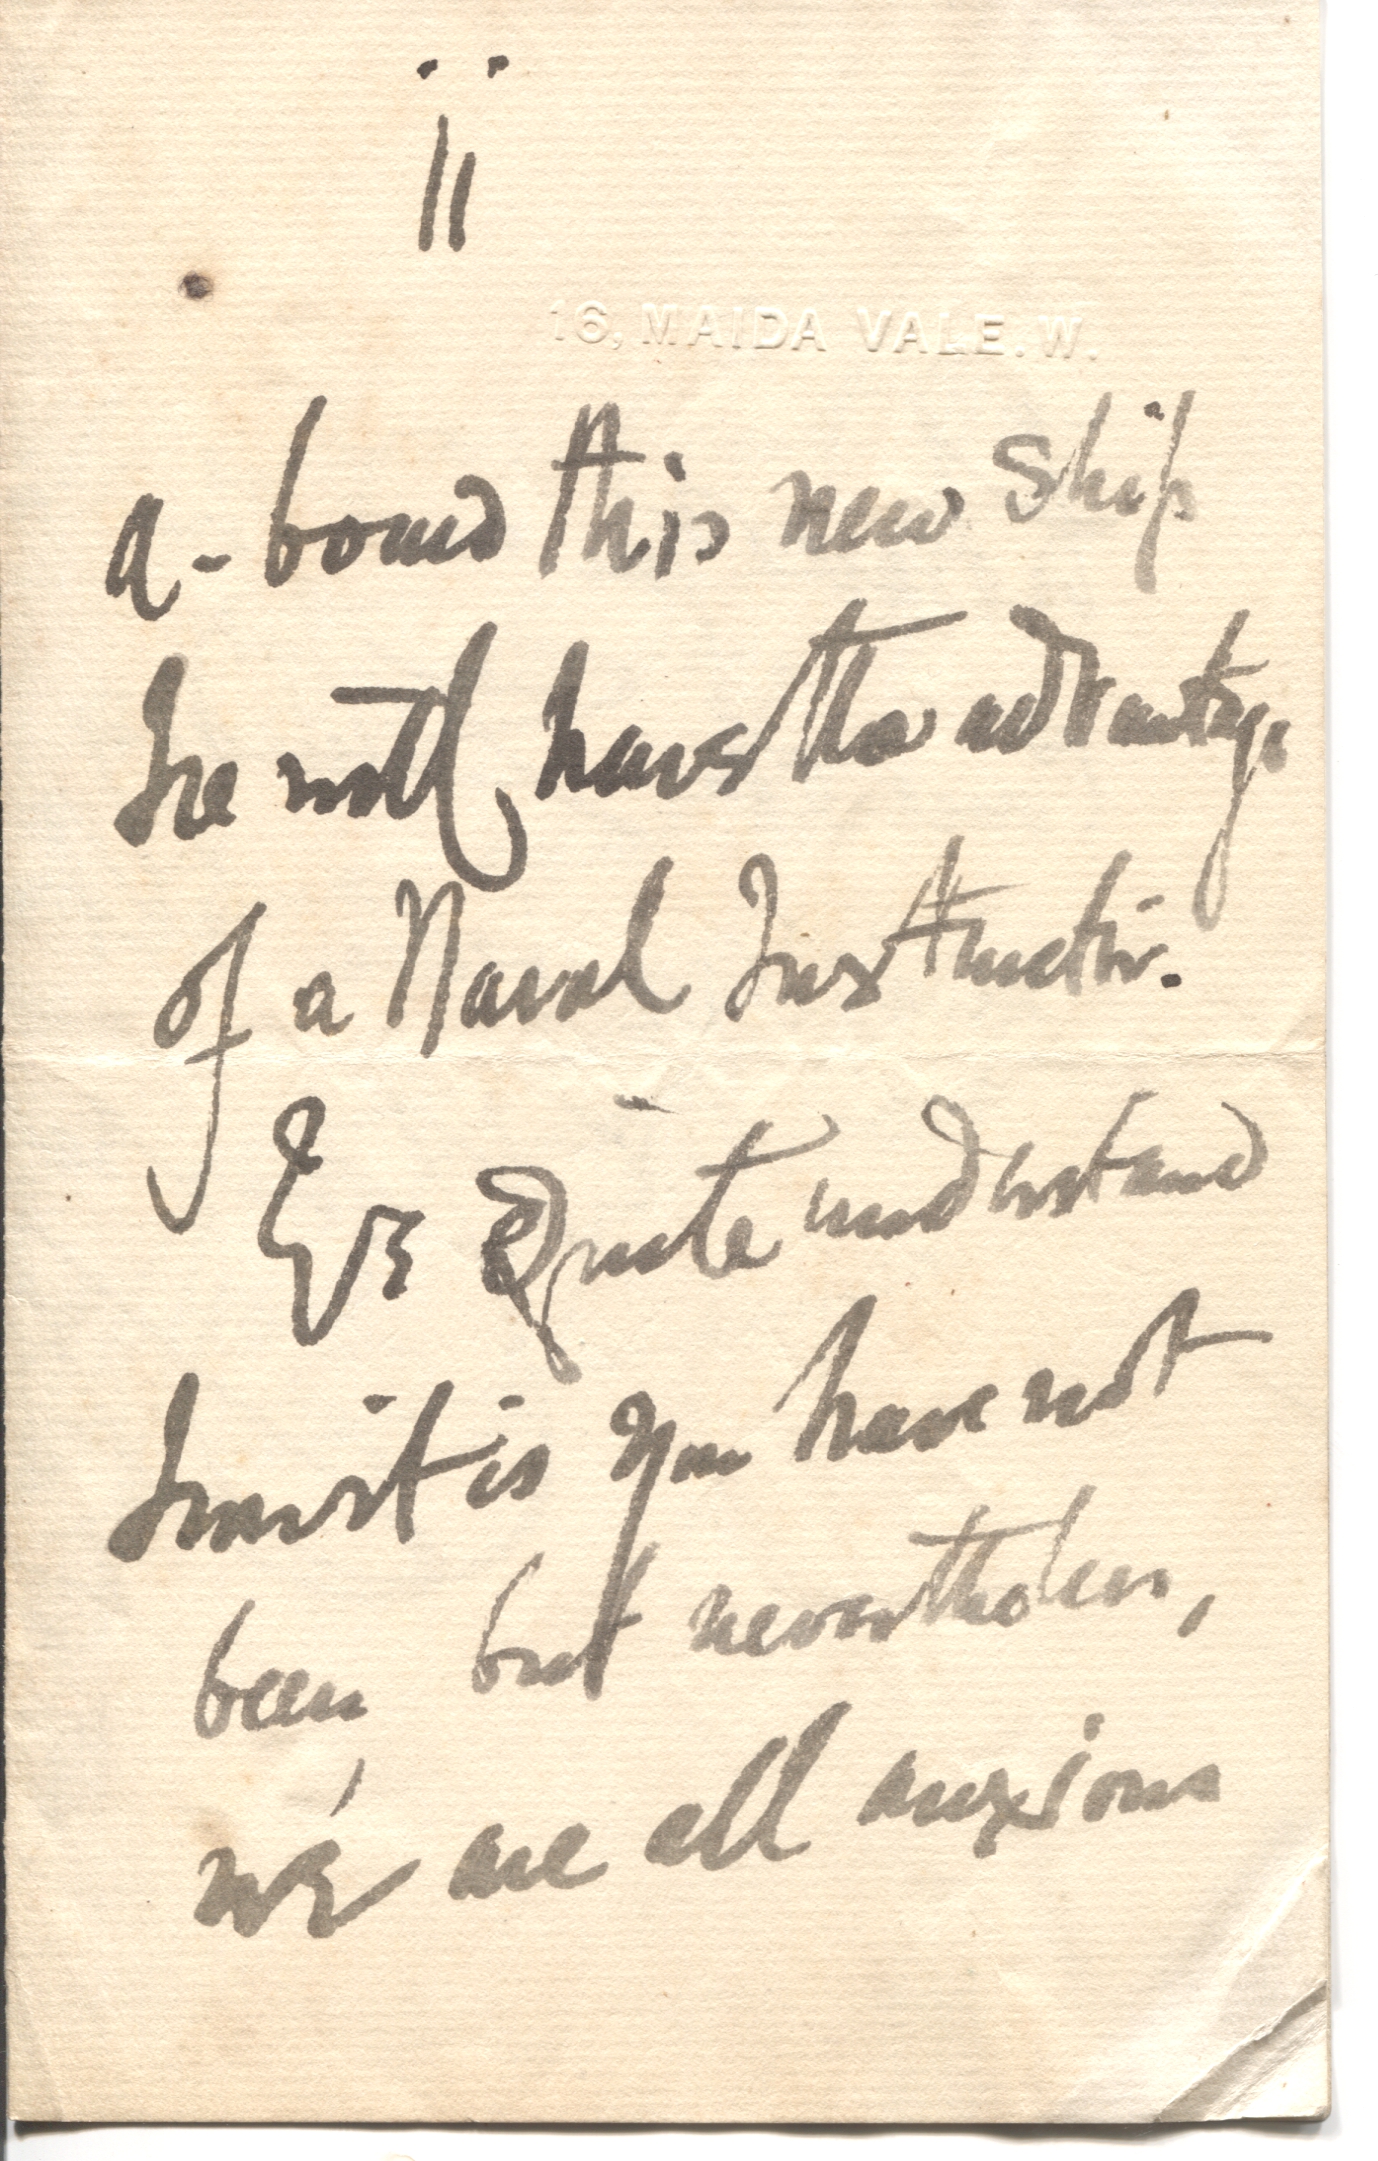 ii
16, MAIDA VALE. W.
a-board this new Ship
he will have the advantage
of a Naval Instructor.
Eve Quite understand
how it is you have not
been, but nevertheless,
we are all anxious